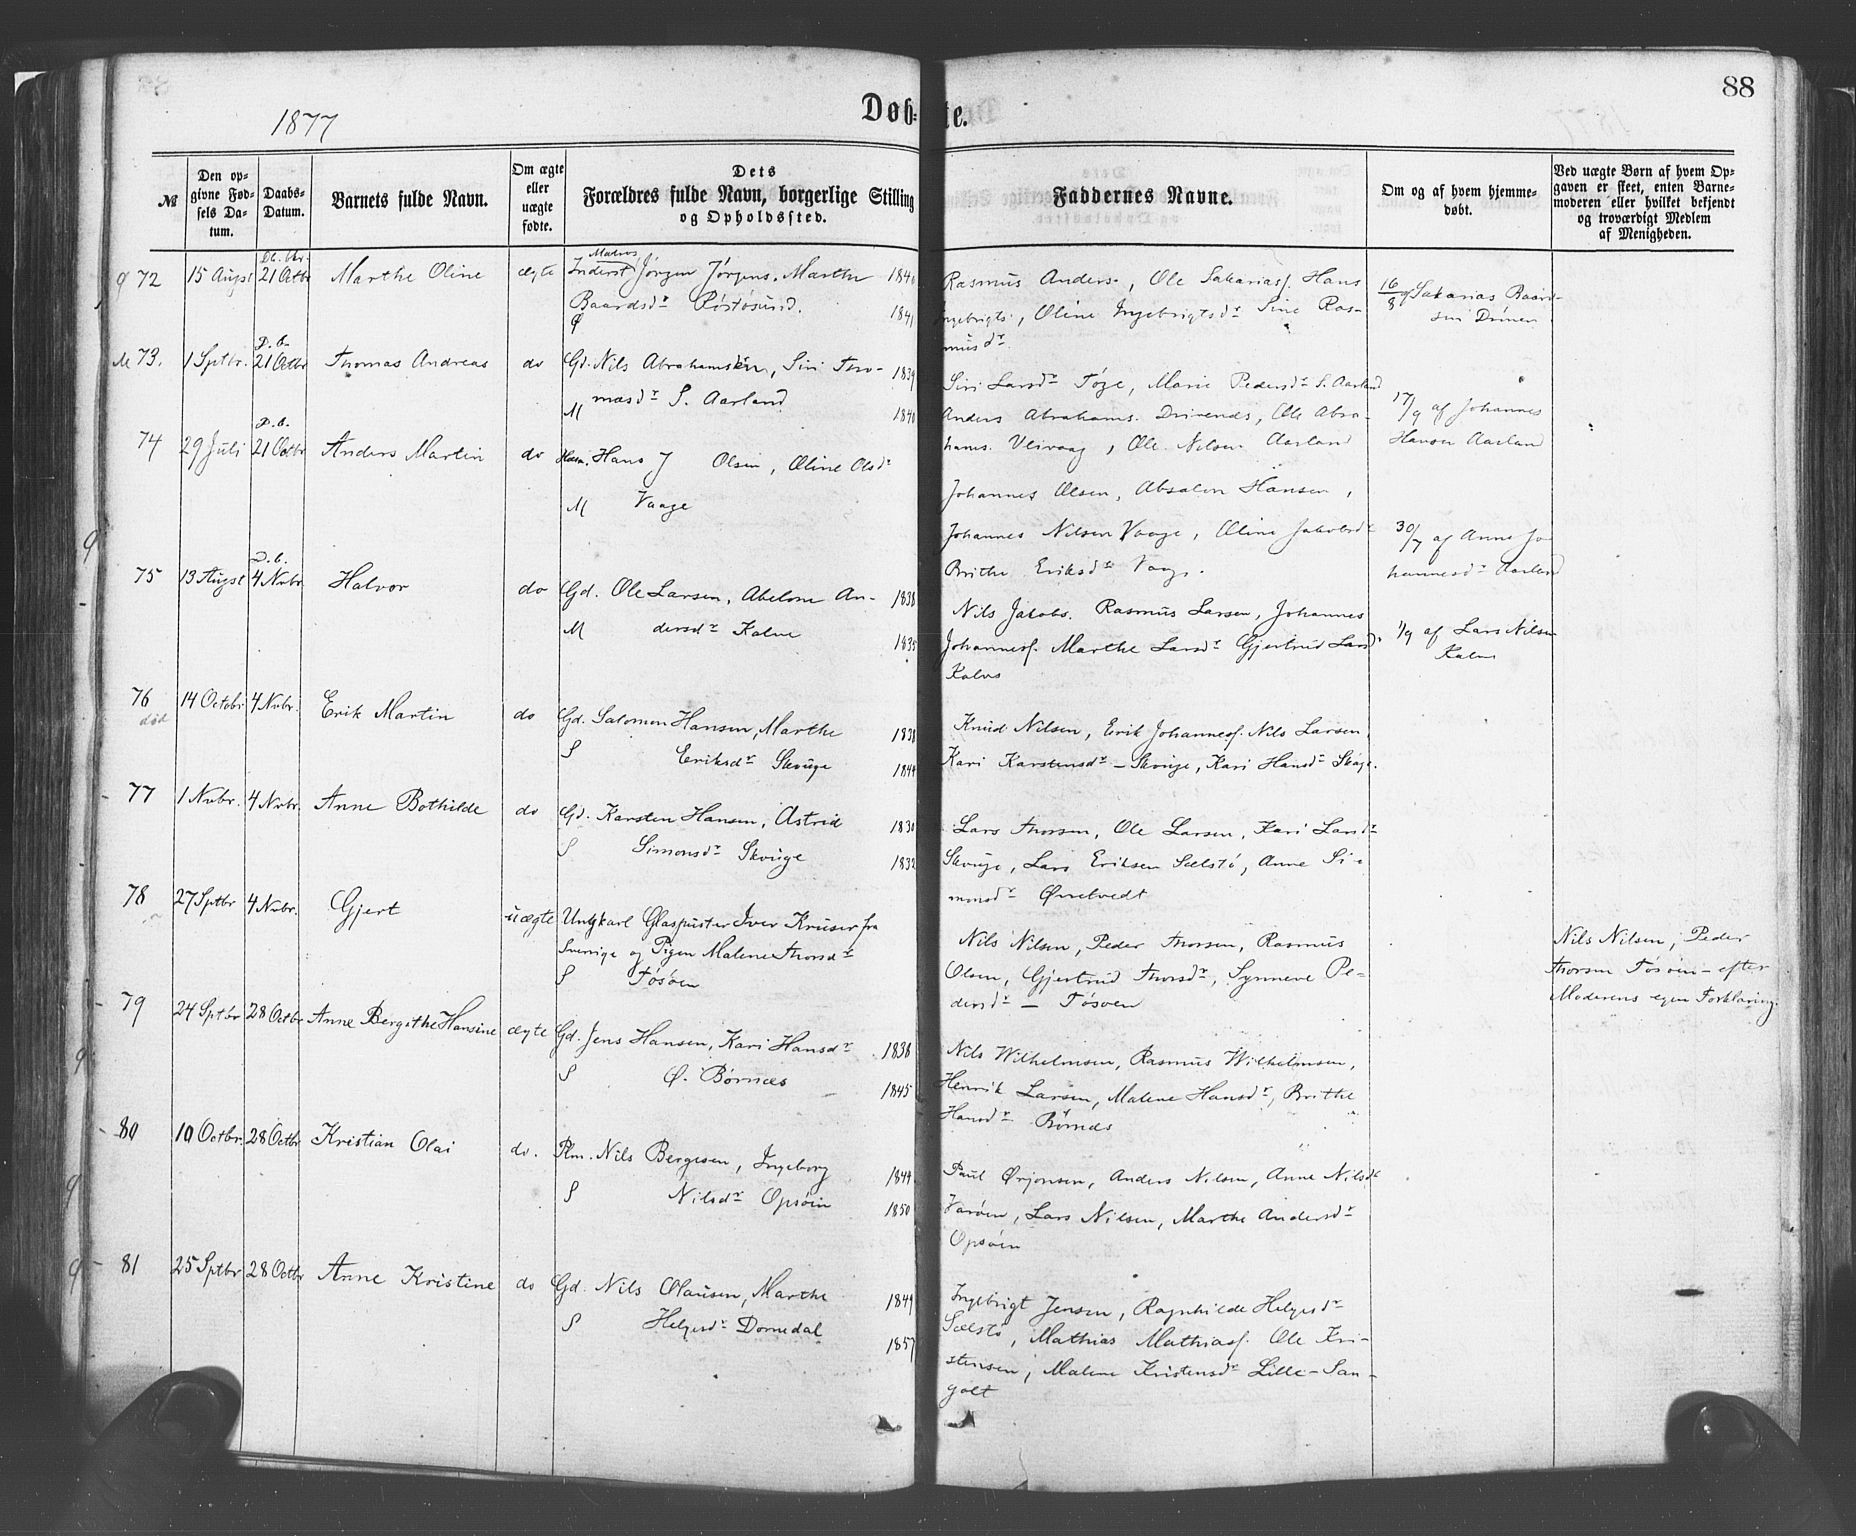 88
1877
Døb-te.
№
Den op-
givne Fød-
sels Da-
tum.
Daabs-
Datum.
Barnets fulde Navn.
Om ægte
eller
uægte
fødte.
Dets
Forældres fulde Navn, borgerlige Stilling
og Opholdssted.
Faddernes Navne.
Om og af hvem hjemme-
døbt.
Ved uægte Børn af hvem Op-
gaven er skeet, enten Barne-
moderen eller hvilket bekjendt
og troværdigt Medlem
af Menigheden.
72 15 Augst 21 Octbr Marthe Oline ægte Matros
Inderst Jørgen Jørgens. Marthe 1840
Baardsdr 1841
Rasmus Anders., Ole Sakariasf. Hans
Ingebrigts, Oline Ingebrigtsdr Sine Ras-
musdr
16/8 af Sakarias Baard-
sen
73. 1 Sptbr. D. b. 21 Octbr Thomas Andreas do Gd. Nils Abrahamsen, Siri Tho- 1839
M masdr S. Aarland 1840
Siri Larsdr Tøge, Marie Pedersdr S. Aarland
Anders Abrahams. Drivenes, Ole Abra-
hams. Veivaag, Ole Nilsen Aarland
17/9 af Johannes
Hansen Aarland
74 29 Juli D. b. 21 Octbr Anders Martin do Hans J Olsen, Oline Olsdr
M Vaage
Johannes Olsen, Absalon Hansen,
Johannes Nilsen Vaage, Oline Jakobsdr
Brithe Eriksdr Vaage.
30/7 af Anne Jo-
hannesdr Aarland
75 13 Augst D. b. 4 Nvbr. Halvor do Gd. Ole Larsen, Abelone An- 1838
M dersdr Kalve 1835
Nils Jakobs. Rasmus Larsen, Johannes
Johannesf. Marthe Larsdr Gjertrud Larsd.
Kalve
1/9 af Lars Nilsen
Kalve
76 død 14 Octobr 4 Nvbr. Erik Martin do Gd. Salomon Hansen, Marthe 1838
S Eriksdr Skouge 1844
Knud Nilsen, Erik Johannesf. Nils Larsen,
Kari Karstensdr – Skouge, Kari Hansdr Skoge.
77 1 Nvbr. 4 Nvbr. Anne Bothilde do Gd. Karsten Hansen, Astrid 1830
S Simonsdr Skouge 1832
Lars Thorsen, Ole Larsen, Kari Larsdr
Skouge, Lars Eriksen Sælstø, Anne Si-
monsdr Øvretvedt
78 27 Sptbr 4 Nvbr. Gjert uægte Ungkarl Glaspuster Iver Kruser fra
Sverrige og Pigen Malene Thorsdr
S Tøsøen
Nils Nilsen, Peder Thorsen, Rasmus
Olsen, Gjertrud Thorsdr, Synneve Pe-
dersdr – Tøsøen
Nils Nilsen, Peder
Thorsen Tøsøen – efter
Moderens egen Forklaring
79 24 Sptbr 28 Octbr Anne Bergithe Hansine ægte Gd. Jens Hansen, Kari Hansdr 1838
S Ø. Børnæs 1845
Nils Wilhelmsen, Rasmus Wilhelmsen,
Henrik Larsen, Malene Hansdr, Brithe
Hansdr Børnæs
80 10 Octbr. 28 Octbr Kristian Olai do. Plm. Nils Bergesen, Ingeborg 1844
S Nilsdr Opsøen 1850
Paul Ørjansen, Anders Nilsen, Anne Nilsdr
Varøen, Lars Nilsen, Marthe Andersdr
Opsøen
81 25 Sptbr 28 Octbr Anne Kristine do Gd. Nils Olausen, Marthe 1849
S Helgesdr Dommedal 1857
Ingebrigt Jensen, Ragnhilde Helgesdr
Sælstø, Mathias Mathiasf. Ole Kri-
stensen, Malene Kristensdr Lille-San-
golt